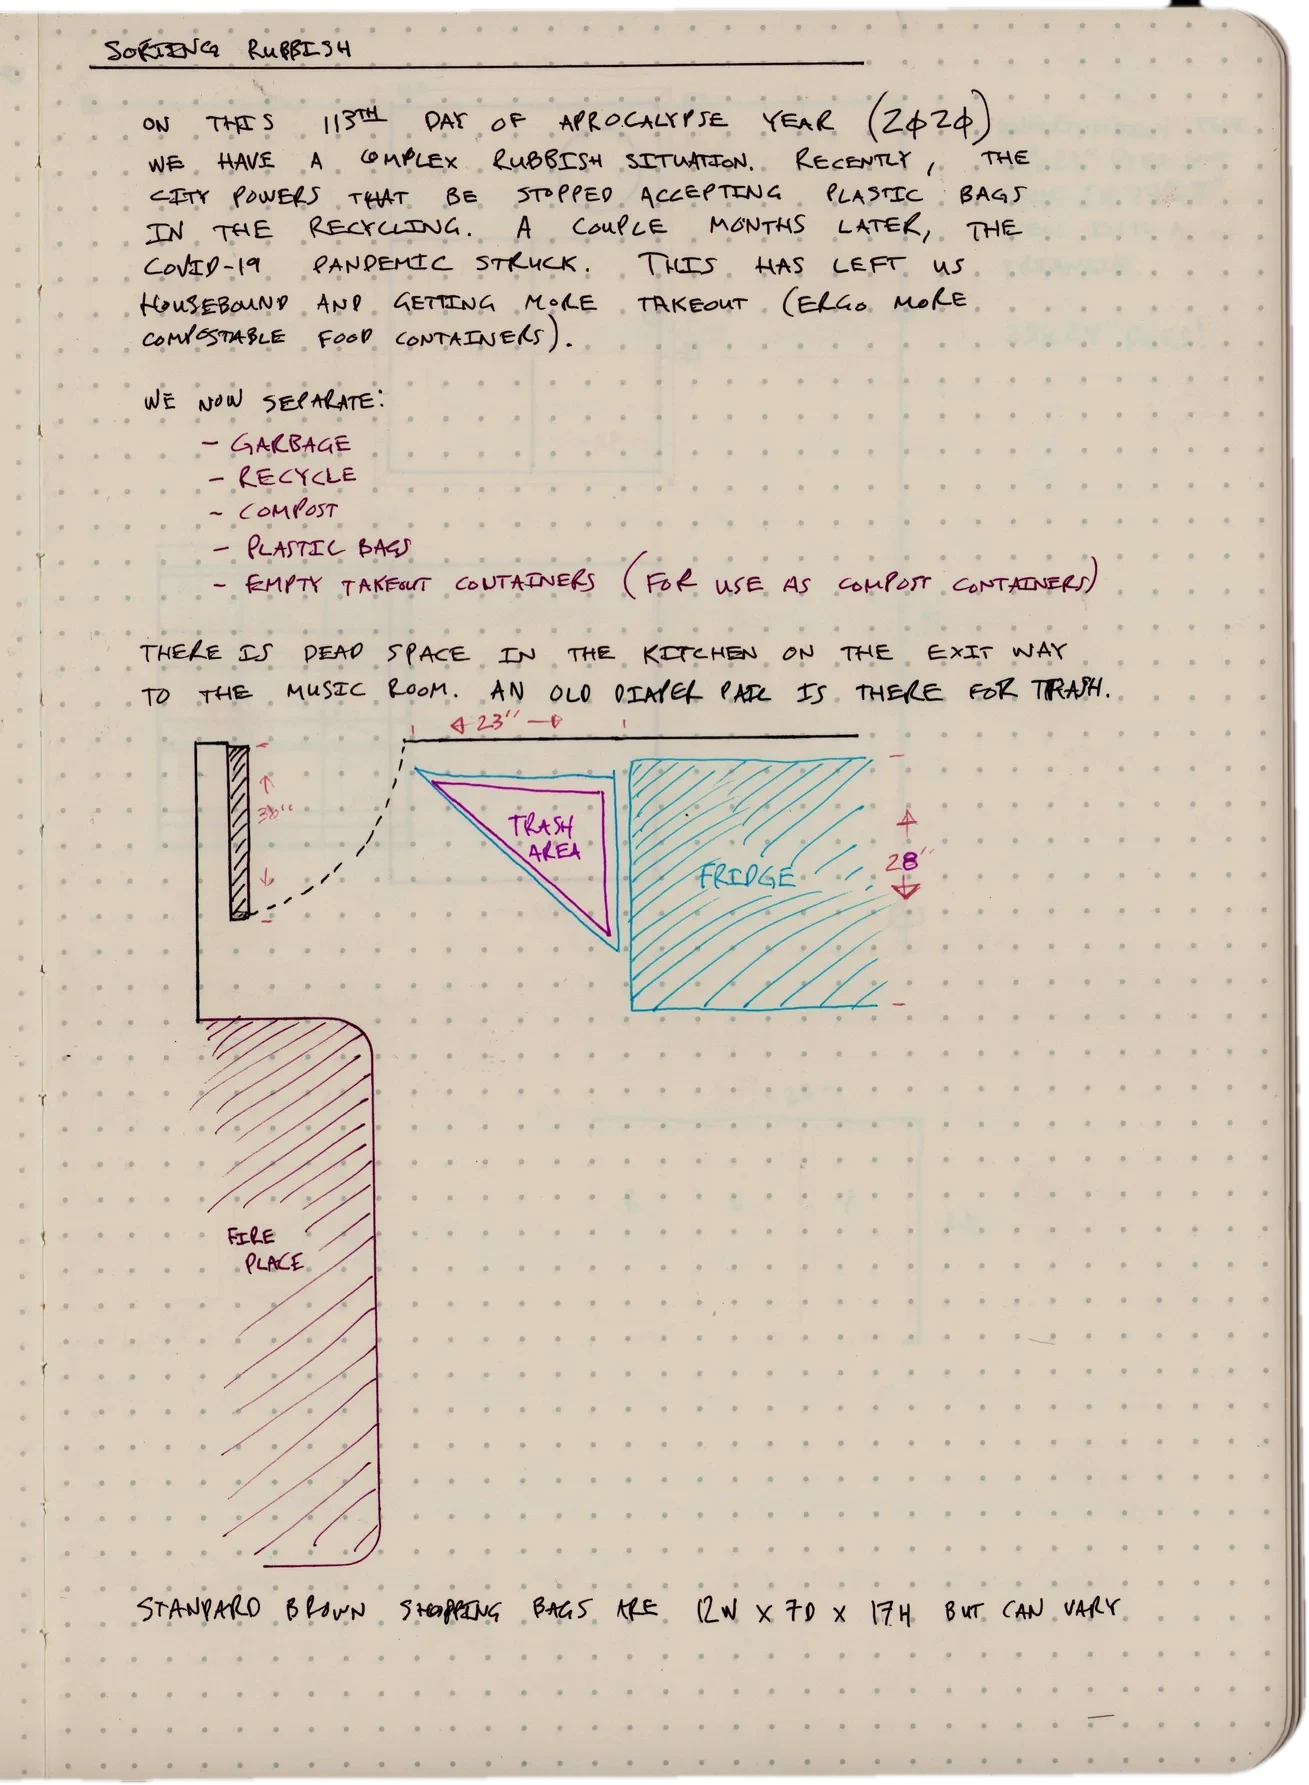 SORTING RUBBISH
ON THIS 113TH DAY OF APROCALYPSE YEAR (2020)
WE HAVE A COMPLEX RUBBISH SITUATION. RECENTLY, THE
CITY POWERS THAT BE STOPPED ACCEPTING PLASTIC BAGS
IN THE RECYCLING. A COUPLE MONTHS LATER, THE
COVID-19 PANDEMIC STRUCK. THIS HAS LEFT US
HOUSEBOUND AND GETTING MORE TAKEOUT (ERGO MORE
COMPOSTABLE FOOD CONTAINERS).
WE NOW SEPARATE:
- GARBAGE
- RECYCLE
- COMPOST
- PLASTIC BAGS
- EMPTY TAKEOUT CONTAINERS (FOR USE AS COMPOST CONTAINERS)
THERE IS DEAD SPACE IN THE KITCHEN ON THE EXIT WAY
TO THE MUSIC ROOM. AN OLD DIAPER PAIL IS THERE FOR TRASH.
23"
TRASH
AREA
FRIDGE
28"
FIRE
PLACE
STANDARD BROWN SHOPPING BAGS ARE 12W x 7D x 17H BUT CAN VARY